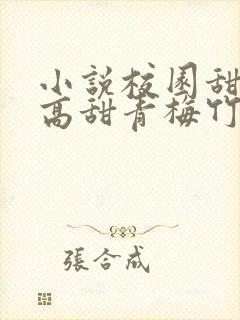 小說校園甜
高甜青梅竹
張合成